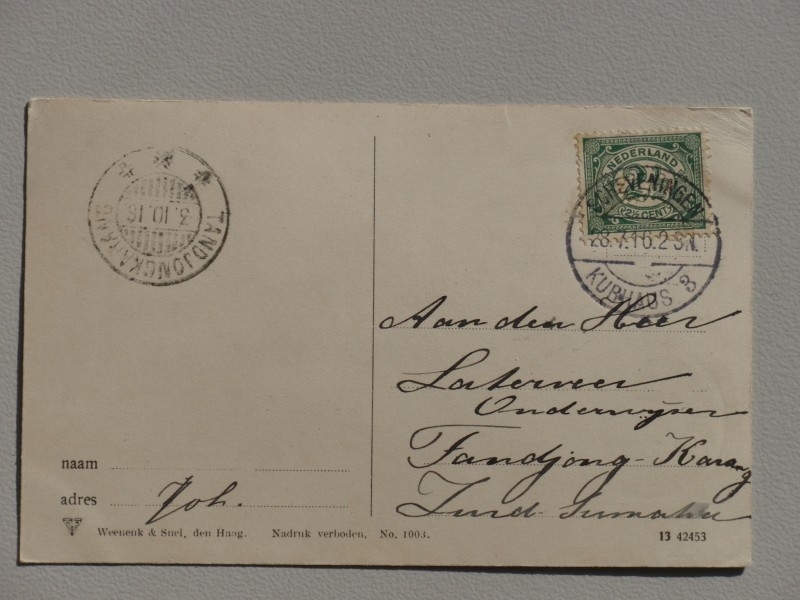 TANDJONGKARANG
3.10.16
NEDERLAND
2½
(2½ CENT)
SCHEVENINGEN
28.7.16.2-3N.
KURHAUS 3
Aan den Heer
Laterveer
Onderwyzer
Tandjong-Karang
Zuid Sumatra
naam
adres Joh.
Weenenk & Snel, den Haag. Nadruk verboden. No. 1003.
13 42453